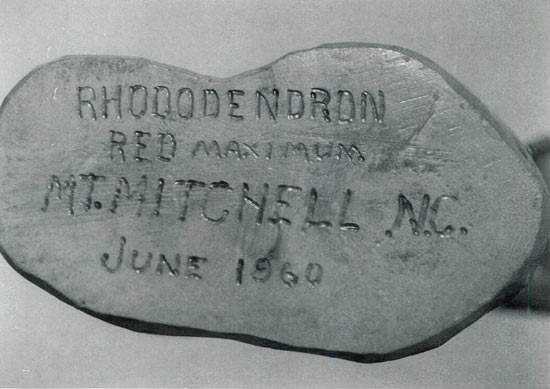 RHODODENDRON
RED MAXIMUM
MT. MITCHELL N.C.
JUNE 1960